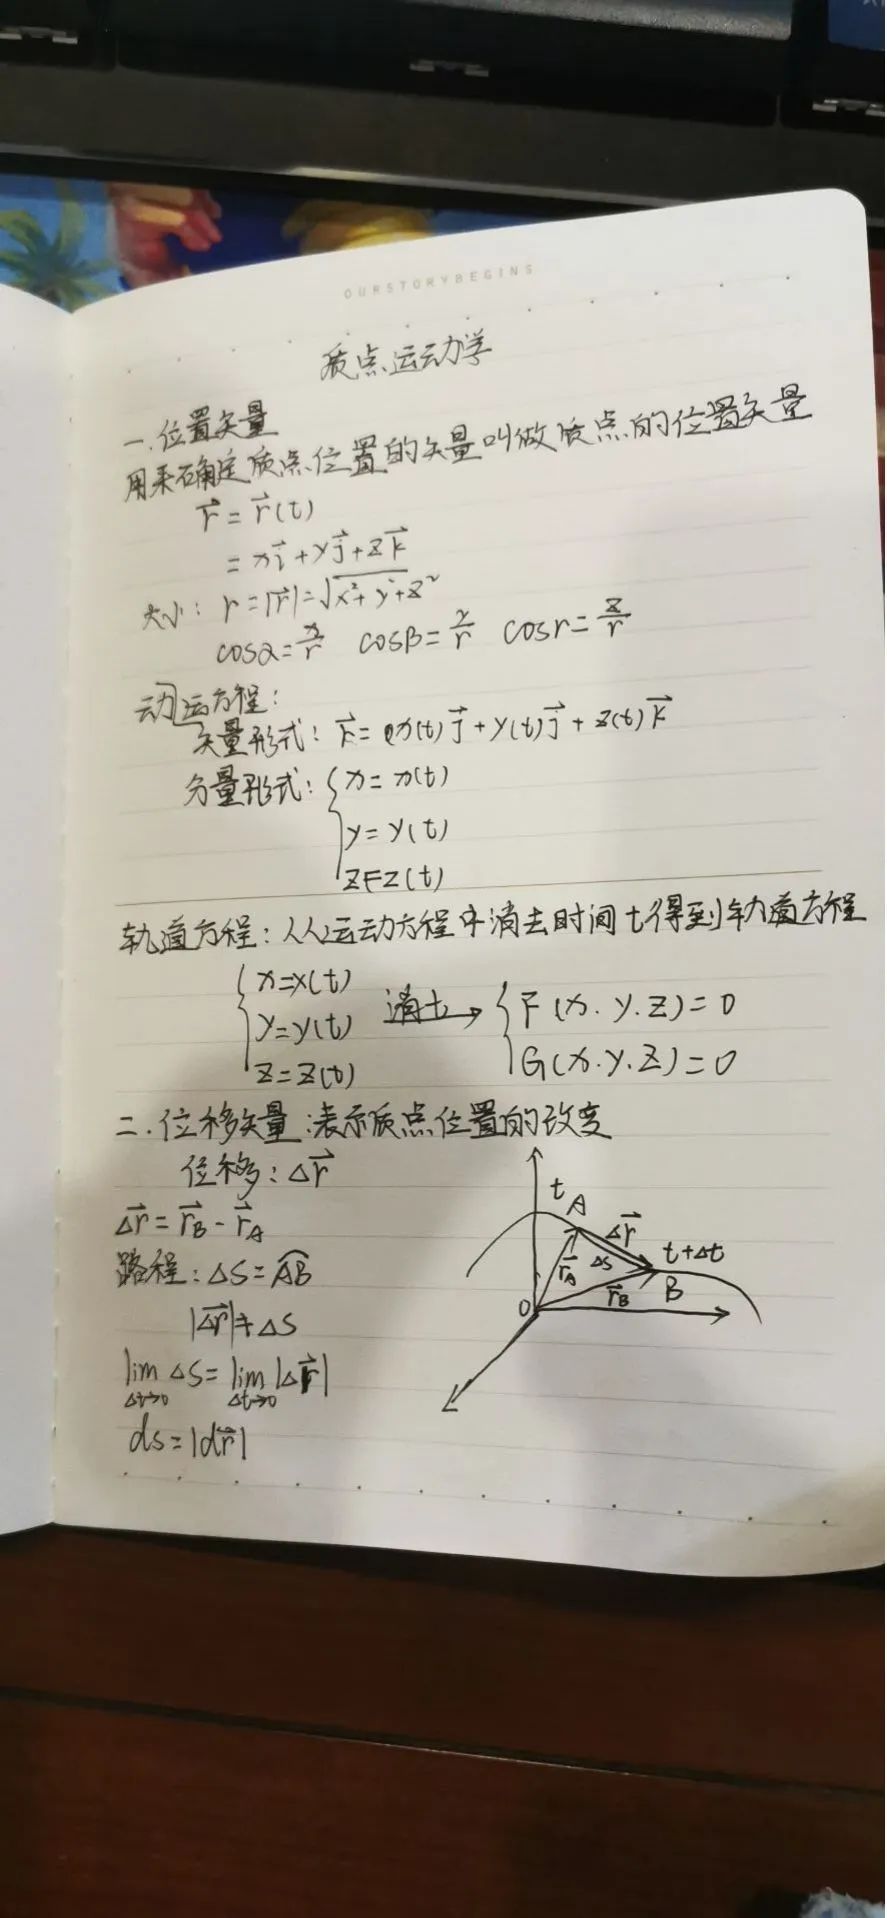 OURSTORYBEGINS
质点运动学
一.位置矢量
用来确定质点位置的矢量叫做质点的位置矢量
r⃗ = r⃗(t)
= xi⃗ + yj⃗ + zk⃗
大小: r = |r⃗| = √x²+y²+z²
cosα = x/r cosβ = y/r cosr = z/r
动运方程:
矢量形式: r⃗ = x(t)j⃗ + y(t)j⃗ + z(t)k⃗
分量形式: { x = x(t)
y = y(t)
z = z(t)
轨道方程: 从运动方程中消去时间t得到轨道方程
{ x = x(t)
y = y(t) 消t → { F(x.y.z) = 0
z = z(t) G(x.y.z) = 0
二.位移矢量:表示质点位置的改变
位移: Δr⃗
Δr⃗ = r⃗B - r⃗A
路程: ΔS = A͡B
|Δr⃗| ≠ ΔS
lim Δt→0 ΔS = lim Δt→0 |Δr⃗|
ds = |dr⃗|
t A Δr⃗
r⃗A ΔS t+Δt
O r⃗B B